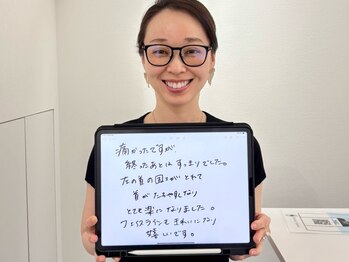 痛かったですが
終ったあとは すっきりでした。
左の首の固さがとれて
首がたちやすくなり
とても楽になりました。
フェイスラインもきれいになり
嬉しいです。